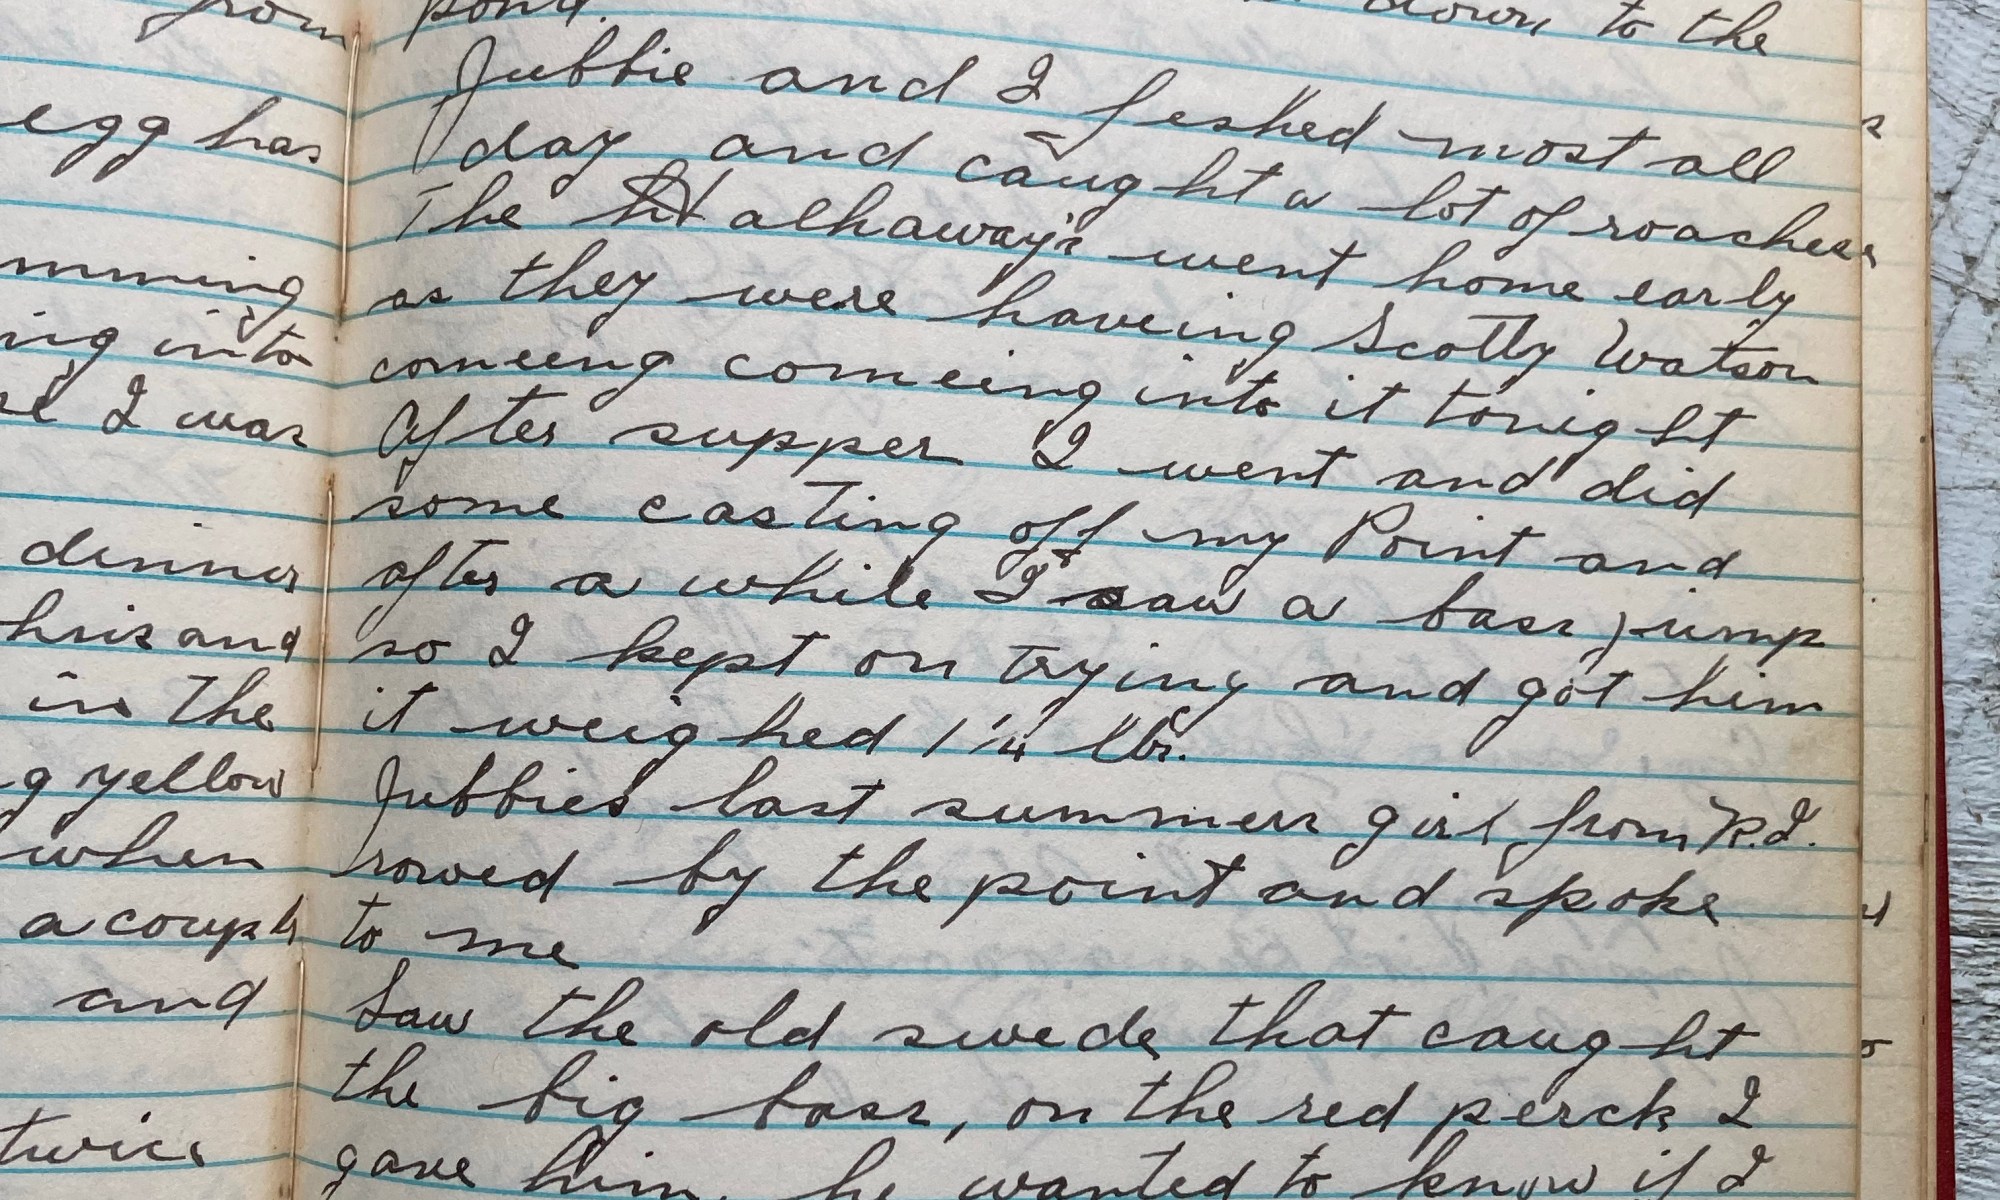 from
egg has
mming
ing into
I was
dinner
hris and
in the
g yellow
when
a couple
and
twice
pond. down to the
Jubbie and I feshed most all
day and caught a lot of roaches
The alhaway's went home early
as they were haveing Scotty Watson
comeing comeing into it tonight
After supper I went and did
some casting off my Point and
after a while I saw a bass jump
so I kept on trying and got him
it weighed 1 1/4 lbs.
Jubbies last summers girl from R.I.
rowed by the point and spoke
to me
Saw the old swede that caught
the big bass, on the red perck I
gave him, he wanted to know if I